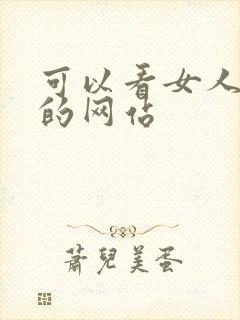 可以看女人
的网站
萧儿美蛋